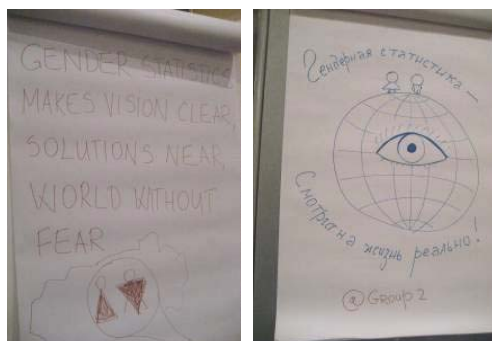 GENDER STATISTICS
MAKES VISION CLEAR,
SOLUTIONS NEAR,
WORLD WITHOUT
FEAR
Гендерная статистика –
Смотри на жизнь реально!
@ Group 2